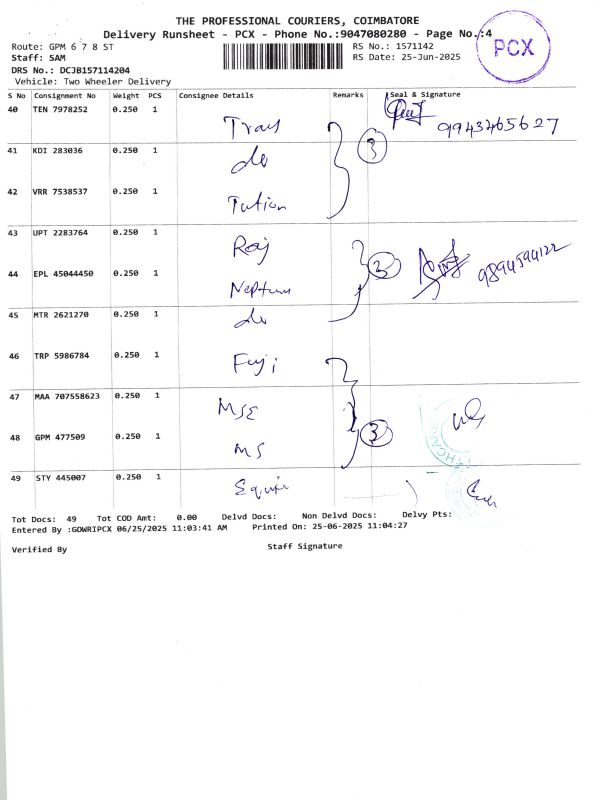 THE PROFESSIONAL COURIERS, COIMBATORE
Delivery Runsheet - PCX - Phone No.:9047080280 - Page No.:4
Route: GPM 6 7 8 ST RS No.: 1571142
Staff: SAM RS Date: 25-Jun-2025
DRS No.: DCJB157114204
Vehicle: Two Wheeler Delivery
PCX
S No Consignment No Weight PCS Consignee Details Remarks Seal & Signature
40 TEN 7978252 0.250 1 Trans 9943465627
41 KDI 283036 0.250 1 do 3
42 VRR 7538537 0.250 1 Tution
43 UPT 2283764 0.250 1 Raj
44 EPL 45044450 0.250 1 Neptune 3 9894594122
45 MTR 2621270 0.250 1 do
46 TRP 5986784 0.250 1 Fuji
47 MAA 707558623 0.250 1 MSE
48 GPM 477509 0.250 1 MS 3
49 STY 445007 0.250 1
Tot Docs: 49 Tot COD Amt: 0.00 Delvd Docs: Non Delvd Docs: Delvy Pts:
Entered By :GOWRIPCX 06/25/2025 11:03:41 AM Printed On: 25-06-2025 11:04:27
Verified By Staff Signature